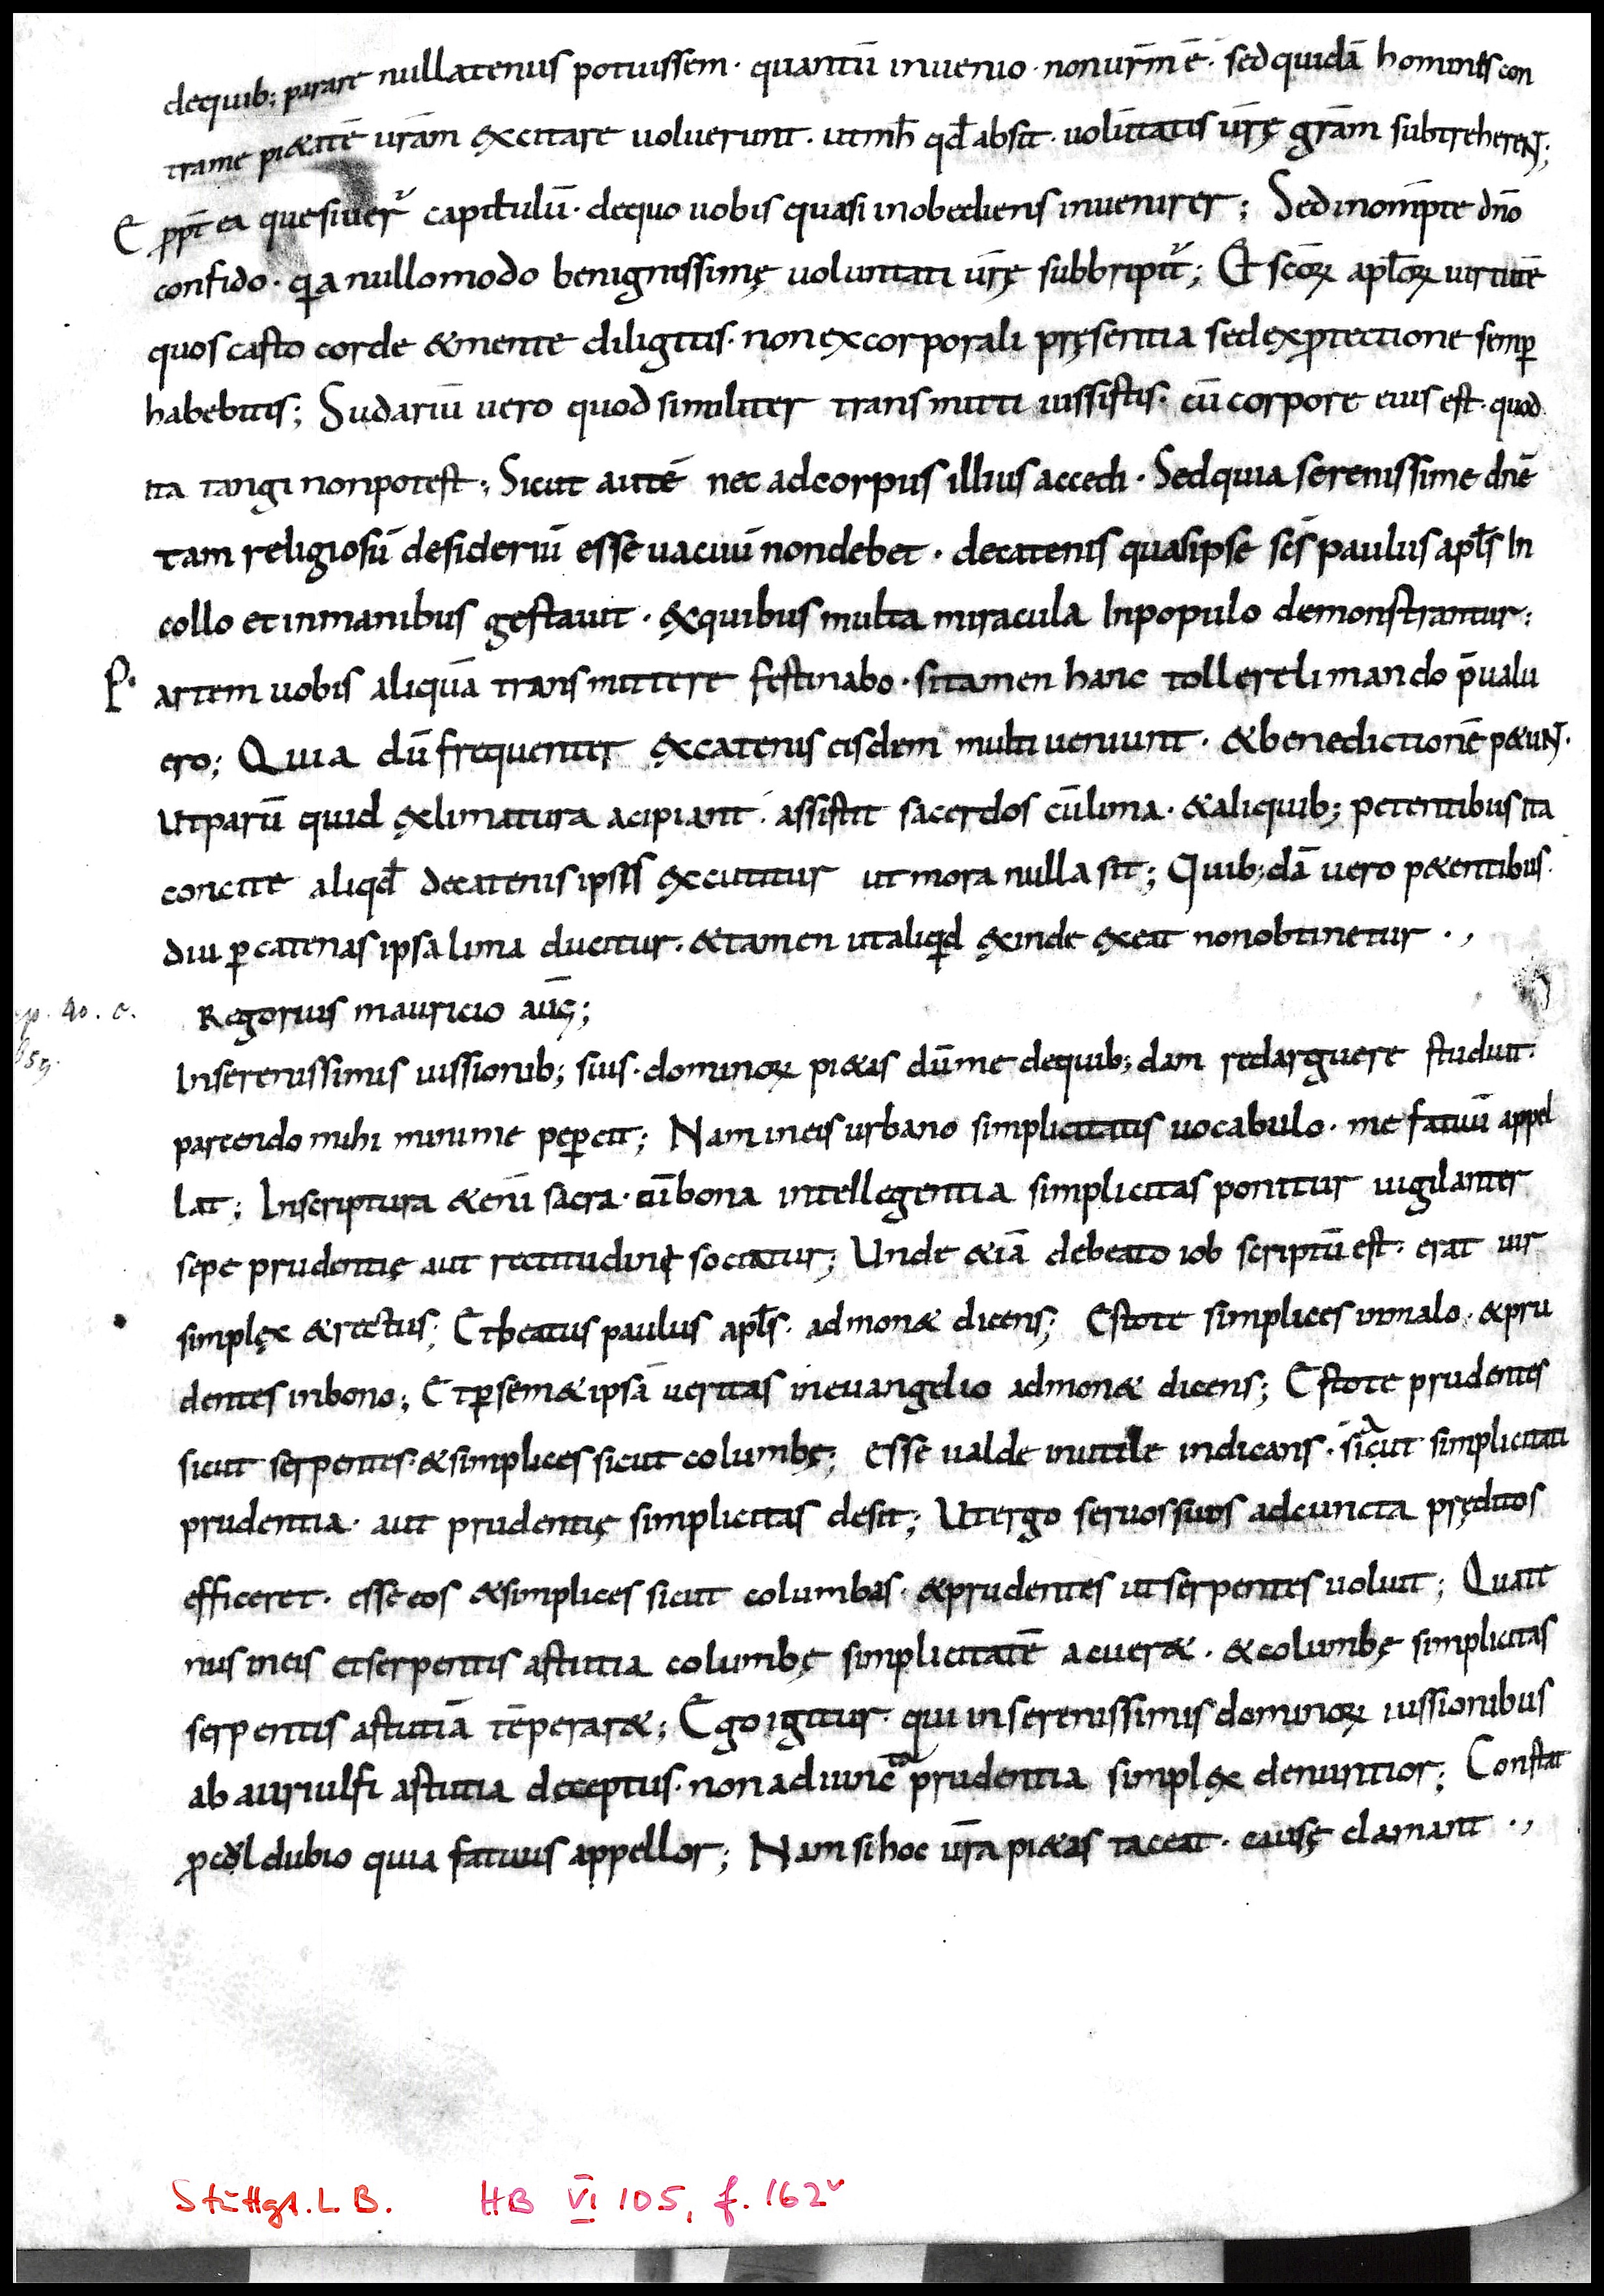 dequib; parare nullatenus potuissem · quantū inuenio · nonurm̄ ē · sed quidā homines con
trame pi&atē urām excitare uoluerunt · utmh̄ qd̄ absit · uolūtatis urę̄ grām subtreherent;
E ppt̄ ea quesiuer᷑ capitulū · dequo uobis quasi inobediens inuenirer; Sed inomīpte dn̄o
confido · qia nullomodo benignissimę uoluntati urę̄ subbripit᷑; Et scōꝝ aplōꝝ uirtutē
quos casto corde &mente diligitis · non excorporali pręsentia sed exꝓtectione semꝑ
habebitis; Sudariū uero quod similiter transmitti iussistis · cū corpore eius est · quod
ita tangi nonpotest; Sicut autē nec adcorpus illius accedi · Sedquia serenissime dn̄e
tam religiosū desideriū esse uacuū nondebet · decatenis quasipse scs̄ paulus apls̄ In
collo et inmanibus gestauit · exquibus multa miracula Inpopulo demonstrantur;
P· artem uobis aliquā transmittere festinabo · sitamen hanc tollere limando p̄ualu
ero; Quia dū frequenter excatenis eisdem multi ueniunt · &benedictionē p&unt ·
Utparū quid exlimatura acipiant · assistit sacerdos cū lima · &aliquib; petentibus ita
concite aliqd̄ decatenis ipsis excutitur ut mora nulla sit; Quib;dā uero p&entibus ·
diu ꝑ catenas ipsa lima ducitur · &tamen utaliqid exinde exeat nonobtinetur · ,
p. 40. c. Regorius mauricio auḡ;
Inserenissimis iussionib; suis · dominoꝝ pi&as dūme dequib;dam redarguere studuit ·
parcendo mihi minime peꝑcit; Nam ineis urbano simplicitatis uocabulo · me fatuū appel
lat; Inscriptura &enī sacra · cū bona intellegentia simplicitas ponitur uigilanter
sepe prudentię aut rectitudinę sociatur; Unde &iā debeato iob scriptū est · erat uir
simplex &rectus; Et beatus paulus apls̄ · admon& dicens; Estote simplices inmalo · &pru
dentes inbono; Et ꝑ sem&ipsā ueritas ineuangelio admon& dicens; Estote prudentes
sicut serpentes · &simplices sicut columbę; esse ualde inutile indicans · si aut simplicitati
prudentia · aut prudentię simplicitas desit; Utergo seruossuos adcuncta pręditos
efficeret · esse eos &simplices sicut columbas · &prudentes ut serpentes uoluit; Quate
nus ineis et serpentis astutia columbę simplicitatē acuer& · &columbę simplicitas
serpentis astutiā tēperar&; Ego igitur · qui inserenissimis dominoꝝ iussionibus
ab auriulfi astutia deceptus · non adiuncta prudentia simplex denuntior; Constat
ꝓcul dubio quia fatuus appellor; Nam si hoc urā pi&as taceat · causę clamant · ,
Stuttgt. L. B. HB VI 105, f. 162v